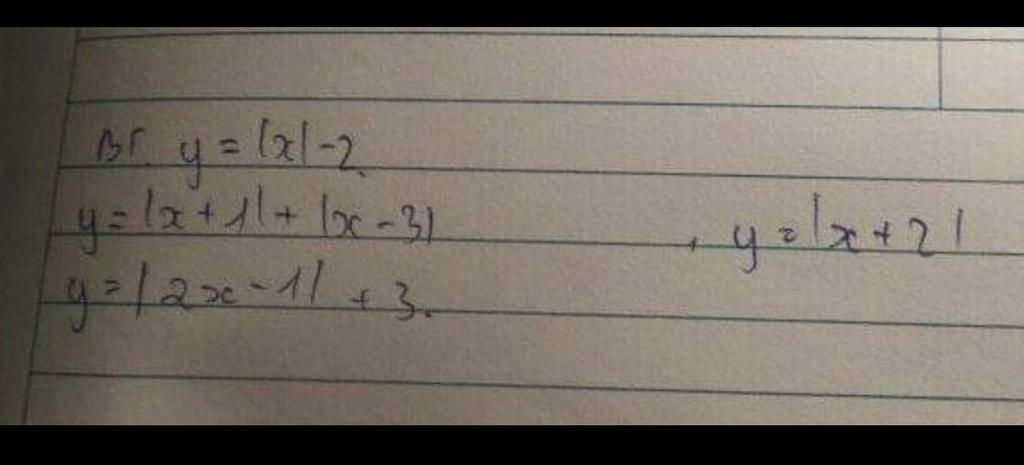 BT. y = |x| - 2.
y = |x + 1| + |x - 3| , y = |x + 2|
y = |2x - 1| + 3.